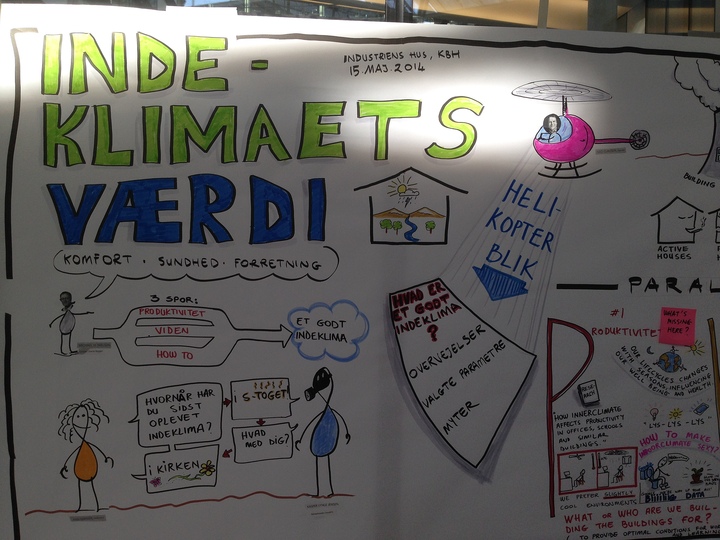 INDE-
KLIMAETS
VÆRDI
KOMFORT · SUNDHED · FORRETNING
INDUSTRIENS HUS, KBH
15. MAJ. 2014
3 SPOR:
PRODUKTIVITET
VIDEN
HOW TO
ET GODT
INDEKLIMA
HVORNÅR HAR
DU SIDST
OPLEVET
INDEKLIMA?
I S-TOGET!
HVAD
MED DIG?
I KIRKEN
HELI-
KOPTER
BLIK
HVAD ER
ET GODT
INDEKLIMA
?
OVERVEJELSER
VALGTE PARAMETRE
MYTER
BUILDING
ACTIVE
HOUSES
PARAL
#1
PRODUKTIVITET
WHAT'S
MISSING
HERE?
OUR LIFECYCLES CHANGES
WITH SEASONS, INFLUENCING
OUR WELL BEING AND HEALTH
RESE
ARCH
HOW INNERCLIMATE
AFFECTS PRODUCTIVITY
IN OFFICES, SCHOOLS
AND SIMILAR
BUILDINGS.
LYS - LYS - LYS
HOW TO MAKE
DATA
WE PREFER SLIGHTLY
COOL ENVIRONMENTS
WHAT OR WHO ARE WE BUIL-
DING THE BUILDINGS FOR?
TO PROVIDE OPTIMAL CONDITIONS FOR